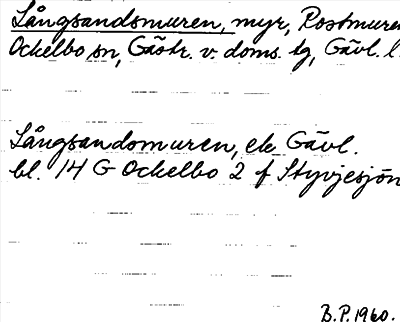 Långsandsmuren, myr, Rostmuren
Ockelbo sn, Gästr. v. doms. tg, Gävl. l.
Långsandomuren, ek Gävl.
bl. 14 G Ockelbo 2 f Styvjesjön
B.P. 1960.